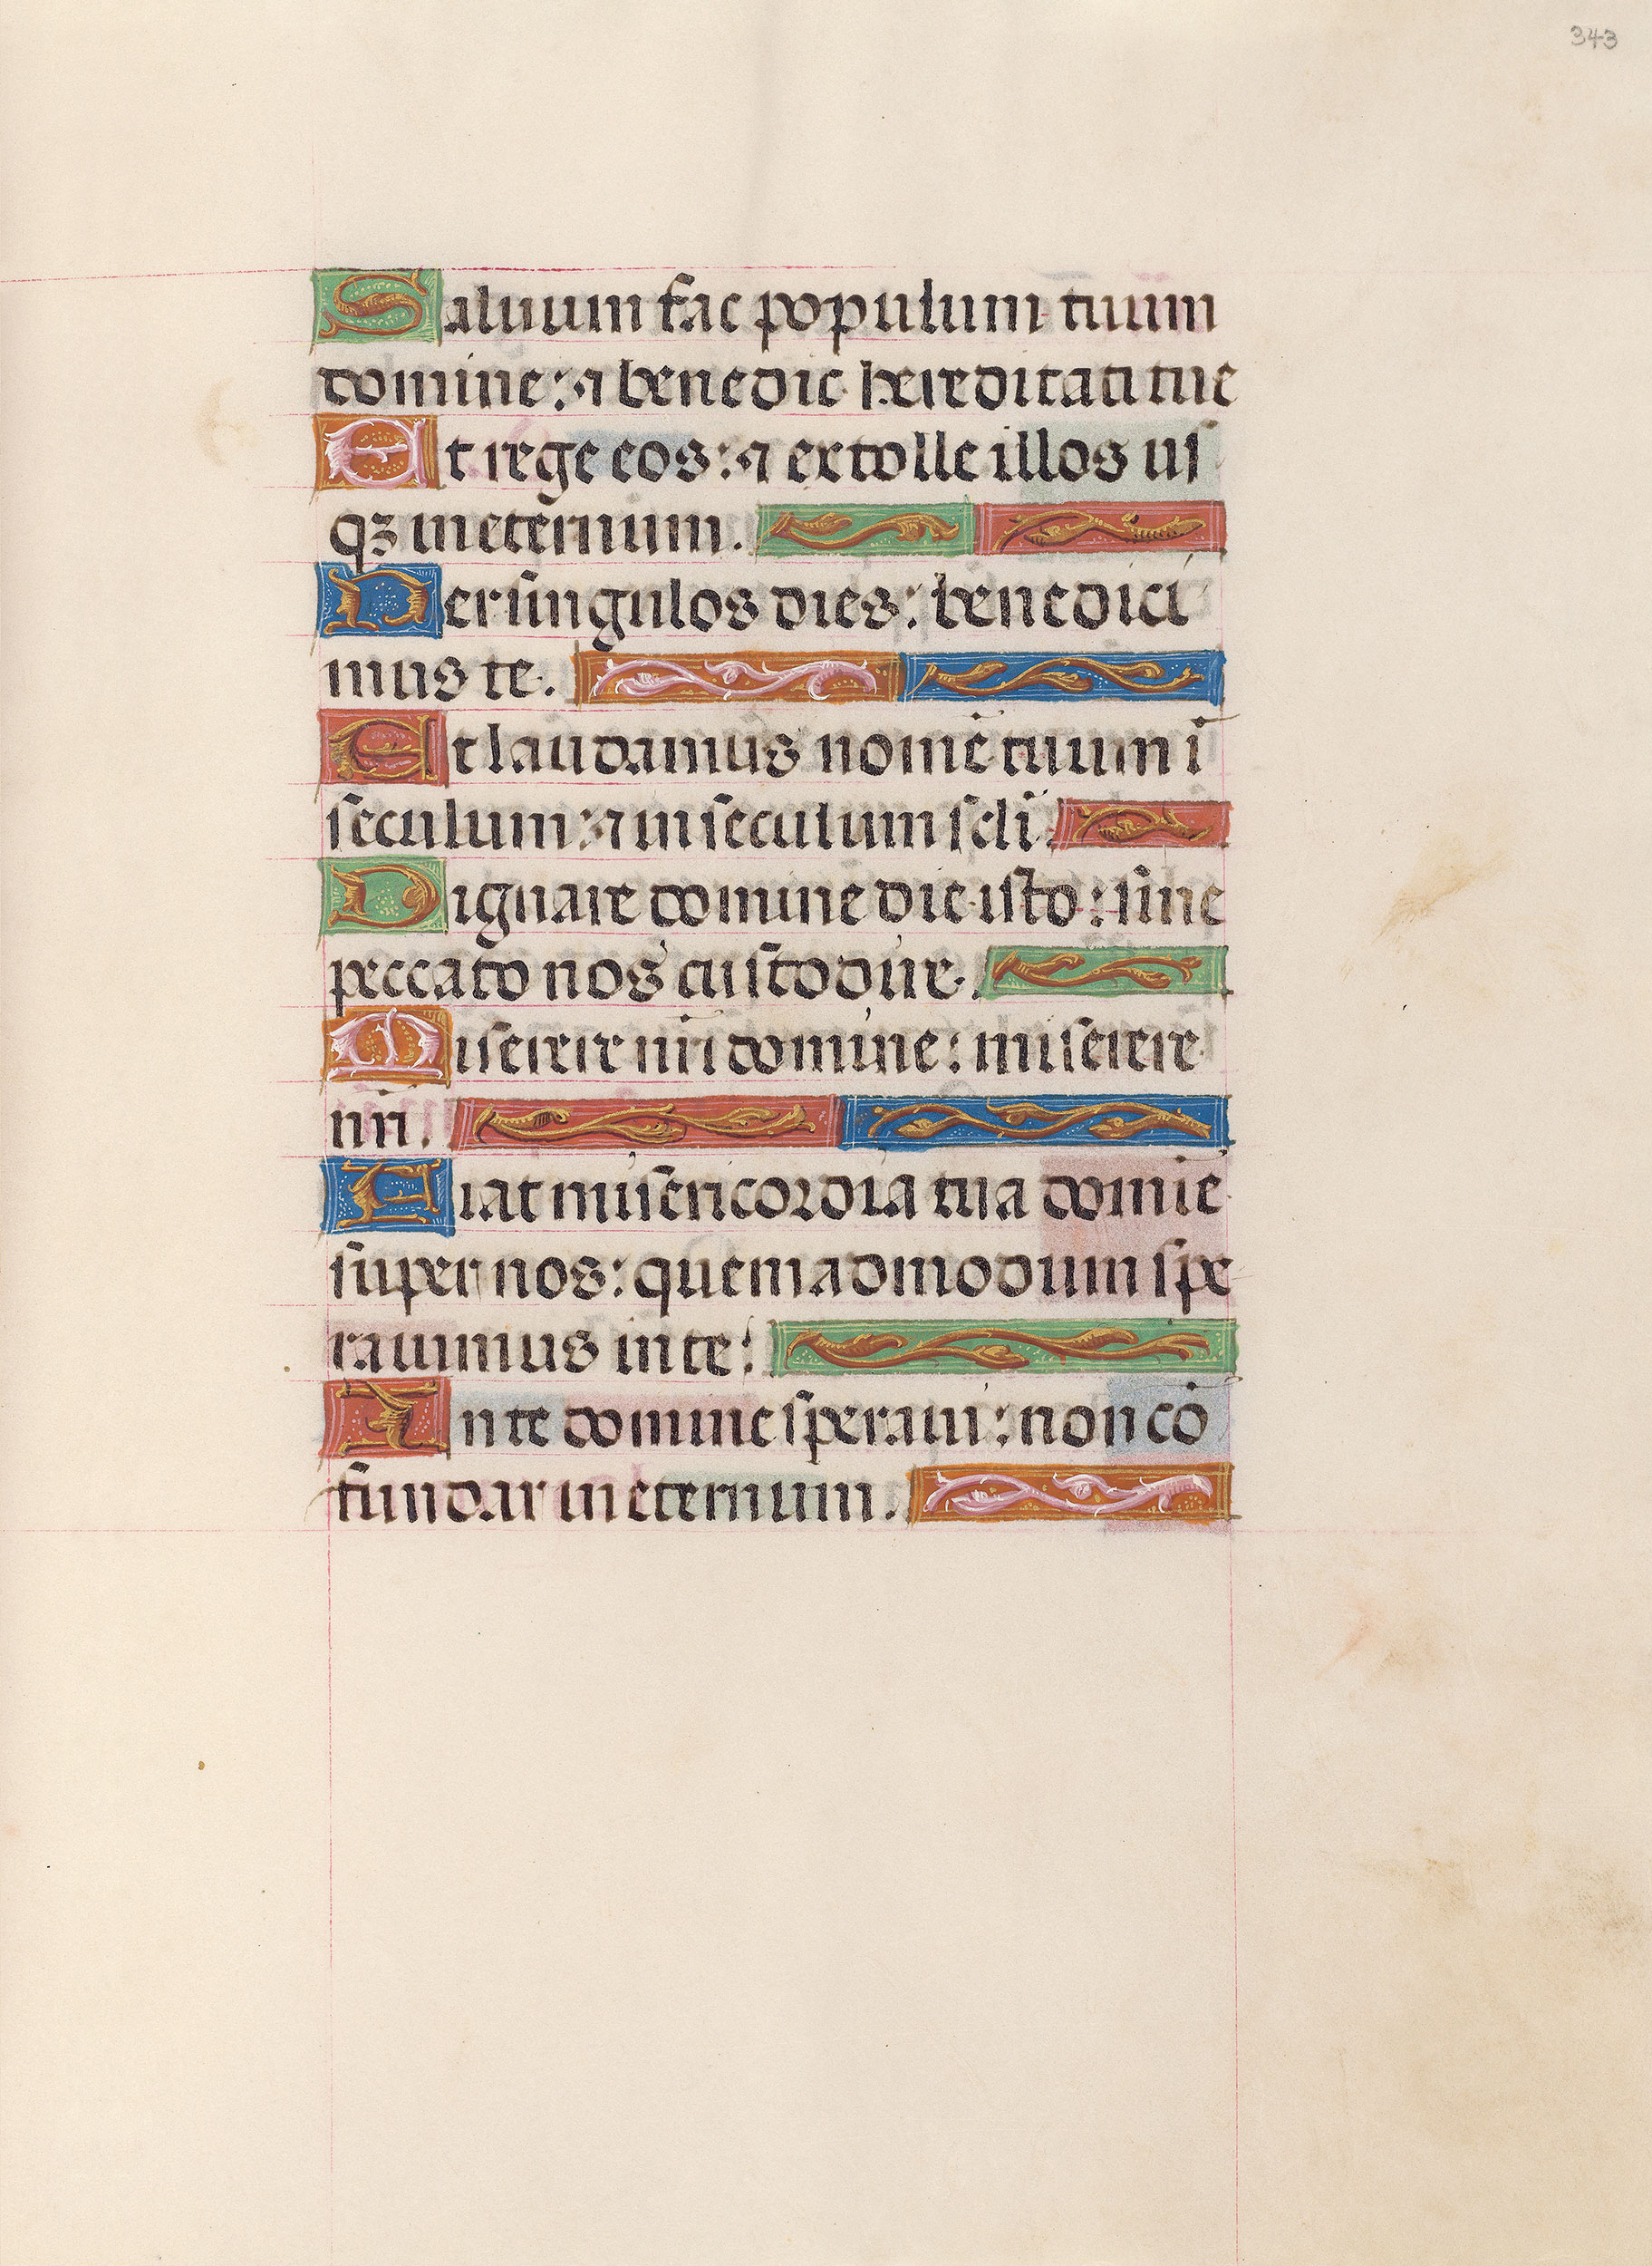 343
Saluum fac populum tuum
domine: ⁊ benedic hereditati tue
Et rege eos: ⁊ extolle illos us
qꝫ in eternum.
Per singulos dies: benedici
mus te.
Et laudamus nomē tuum ī
seculum: ⁊ in seculum scłi.
Dignare domine die isto: sine
peccato nos custodire.
Miserere nr̄i domine: miserere
nr̄i.
Fiat misericordia tua domīe
super nos: quemadmodum spe
rauimus in te:
In te domine speraui: non cō
fundar in eternum.